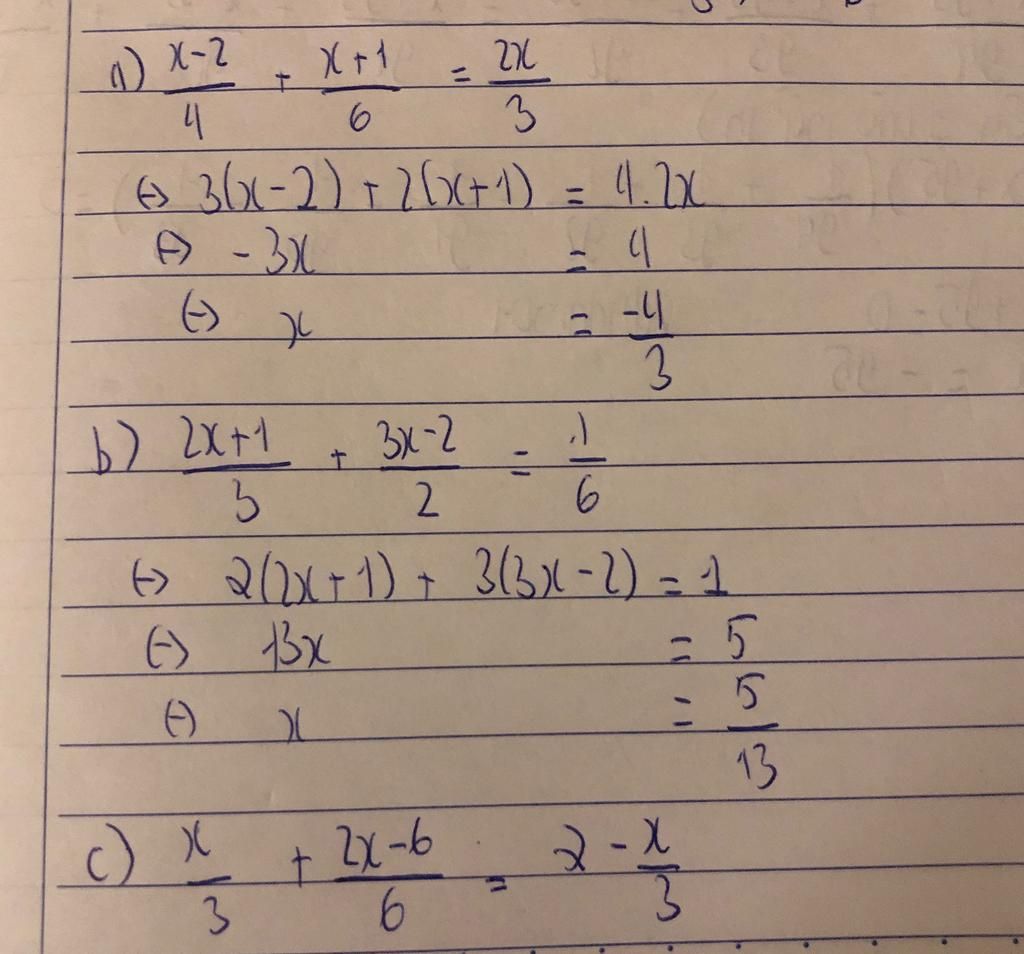 a) x-2/4 + x+1/6 = 2x/3
⇔ 3(x-2) + 2(x+1) = 4.2x
⇔ -3x = 4
⇔ x = -4/3
b) 2x+1/3 + 3x-2/2 = 1/6
⇔ 2(2x+1) + 3(3x-2) = 1
⇔ 13x = 5
⇔ x = 5/13
c) x/3 + 2x-6/6 = 2 - x/3